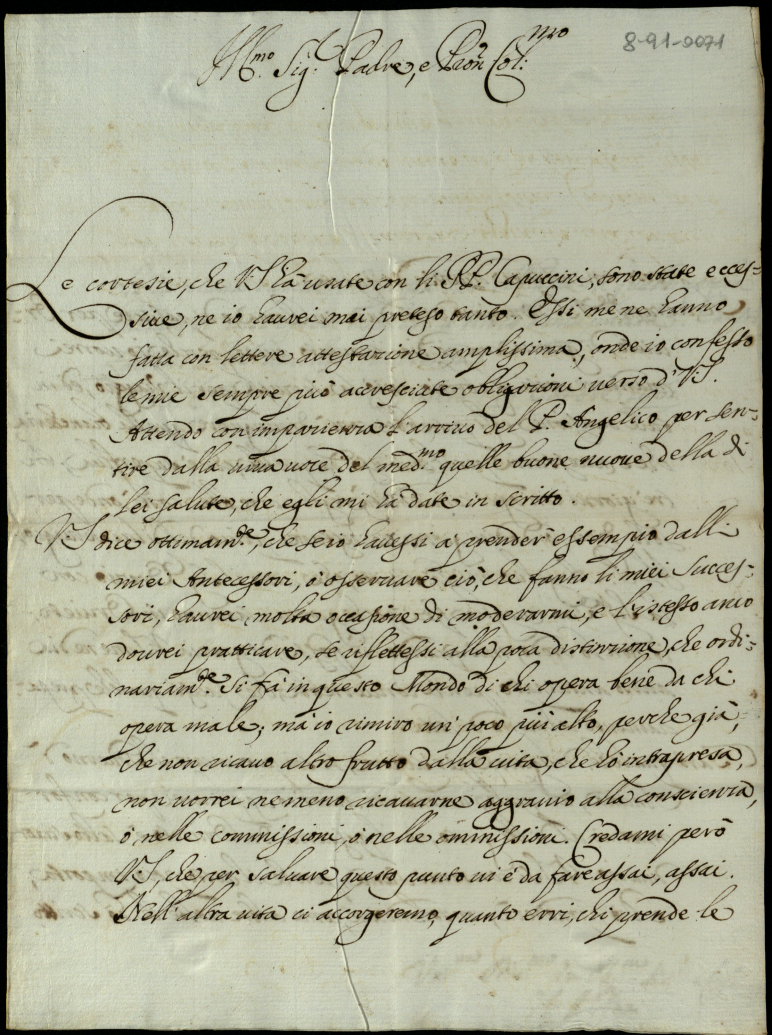 8-91-0071
Ill.mo Sig.r Padre, e Pron Col:mo
Le cortesie, che V.S. hà usate con li PP. Capuccini, sono state ecces-
siue, ne io haurei mai preteso tanto. Essi me ne hanno
fatta con lettere attestazione amplissima, onde io confesso
le mie sempre più accresciute obligazioni verso d'V.S.
Attendo con impazienza l'arriuo del P. Angelico per sen-
tire dalla uiua uoce del med.mo quelle buone nuoue della di
lei salute, che egli mi hà date in scritto.
V.S. dice ottimam.te, che se io hauessi à prender' essempio dalli
miei Antecessori, ò osseruare ciò, che fanno li miei Succes-
sori, haurei molta occasione di moderarmi, e l'istesso anco
dourei pratticare, se riflettessi alla poca distinzione, che ordi-
nariam.te si fà in questo Mondo di chi opera bene da chi
opera male; mà io rimiro un' poco più alto, perche già,
che non ricauo altro frutto dalla uita, che hò intrapresa,
non uorrei ne meno ricauarne aggrauio alla conscienza,
ò nelle commissioni, ò nelle ommissioni. Credami però
V.S., che per saluare questo punto ui è da fare assai, assai.
Nell' altra uita ci accorgeremo, quanto erri, chi prende le